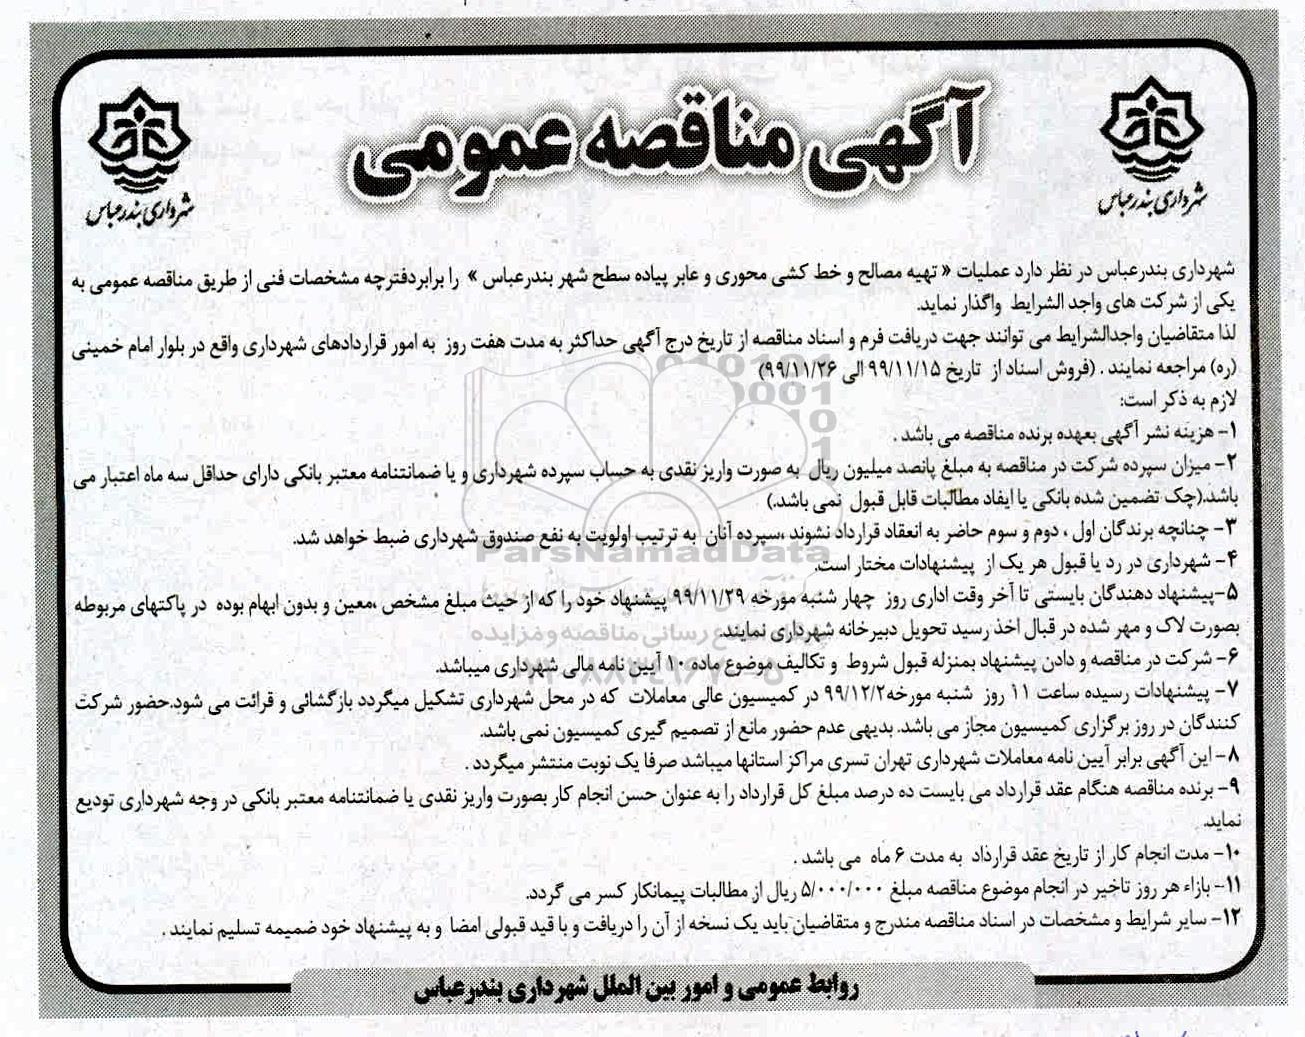 آگهی مناقصه عمومی
شهرداری بندرعباس
شهرداری بندرعباس
شهرداری بندرعباس در نظر دارد عملیات « تهیه مصالح و خط کشی محوری و عابر پیاده سطح شهر بندرعباس » را برابردفترچه مشخصات فنی از طریق مناقصه عمومی به
یکی از شرکت های واجد الشرایط واگذار نماید.
لذا متقاضیان واجدالشرایط می توانند جهت دریافت فرم و اسناد مناقصه از تاریخ درج آگهی حداکثر به مدت هفت روز به امور قراردادهای شهرداری واقع در بلوار امام خمینی
(ره) مراجعه نمایند . (فروش اسناد از تاریخ ۹۹/۱۱/۱۵ الی ۹۹/۱۱/۲۶)
لازم به ذکر است:
۱- هزینه نشر آگهی بعهده برنده مناقصه می باشد .
۲- میزان سپرده شرکت در مناقصه به مبلغ پانصد میلیون ریال به صورت واریز نقدی به حساب سپرده شهرداری و یا ضمانتنامه معتبر بانکی دارای حداقل سه ماه اعتبار می
باشد.(چک تضمین شده بانکی یا ایفاد مطالبات قابل قبول نمی باشد.)
۳- چنانچه برندگان اول ، دوم و سوم حاضر به انعقاد قرارداد نشوند ،سپرده آنان به ترتیب اولویت به نفع صندوق شهرداری ضبط خواهد شد.
۴- شهرداری در رد یا قبول هر یک از پیشنهادات مختار است.
۵-پیشنهاد دهندگان بایستی تا آخر وقت اداری روز چهار شنبه مورخه ۹۹/۱۱/۲۹ پیشنهاد خود را که از حیث مبلغ مشخص ،معین و بدون ابهام بوده در پاکتهای مربوطه
بصورت لاک و مهر شده در قبال اخذ رسید تحویل دبیرخانه شهرداری نمایند.
۶- شرکت در مناقصه و دادن پیشنهاد بمنزله قبول شروط و تکالیف موضوع ماده ۱۰ آیین نامه مالی شهرداری میباشد.
۷- پیشنهادات رسیده ساعت ۱۱ روز شنبه مورخه۹۹/۱۲/۲ در کمیسیون عالی معاملات که در محل شهرداری تشکیل میگردد بازگشائی و قرائت می شود.حضور شرکت
کنندگان در روز برگزاری کمیسیون مجاز می باشد. بدیهی عدم حضور مانع از تصمیم گیری کمیسیون نمی باشد.
۸- این آگهی برابر آیین نامه معاملات شهرداری تهران تسری مراکز استانها میباشد صرفا یک نوبت منتشر میگردد .
۹- برنده مناقصه هنگام عقد قرارداد می بایست ده درصد مبلغ کل قرارداد را به عنوان حسن انجام کار بصورت واریز نقدی یا ضمانتنامه معتبر بانکی در وجه شهرداری تودیع
نماید.
۱۰- مدت انجام کار از تاریخ عقد قرارداد به مدت ۶ ماه می باشد .
۱۱- بازاء هر روز تاخیر در انجام موضوع مناقصه مبلغ ۵/۰۰۰/۰۰۰ ریال از مطالبات پیمانکار کسر می گردد.
۱۲- سایر شرایط و مشخصات در اسناد مناقصه مندرج و متقاضیان باید یک نسخه از آن را دریافت و با قید قبولی امضا و به پیشنهاد خود ضمیمه تسلیم نمایند .
روابط عمومی و امور بین الملل شهرداری بندرعباس
ParsNamadData